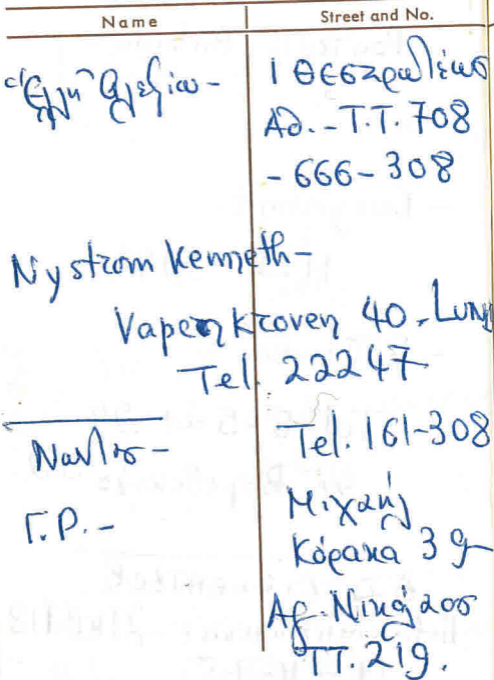 Name Street and No.
Ἕλλη Ἀλεξίου - 1 Θεσπρωτέως
Αθ. - Τ.Τ. 708
- 666-308
Nystrom Kenneth -
Vapenkroven 40. LUND
Tel. 22247
Tel. 161-308
Γ.Ρ. - Μιχαήλ
Κόρακα 39
Αγ. Νικόλαος
ΤΤ. 219.